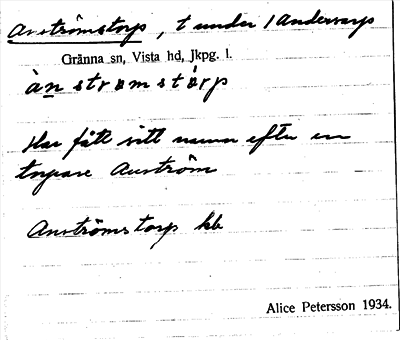 Anströmstorp, t under 1 Anderstorp
Gränna sn, Vista hd, Jkpg. l.
ànstrømstórp
Har fått sitt namn efter en
torpare Anström
Anströmstorp kb
Alice Petersson 1934.